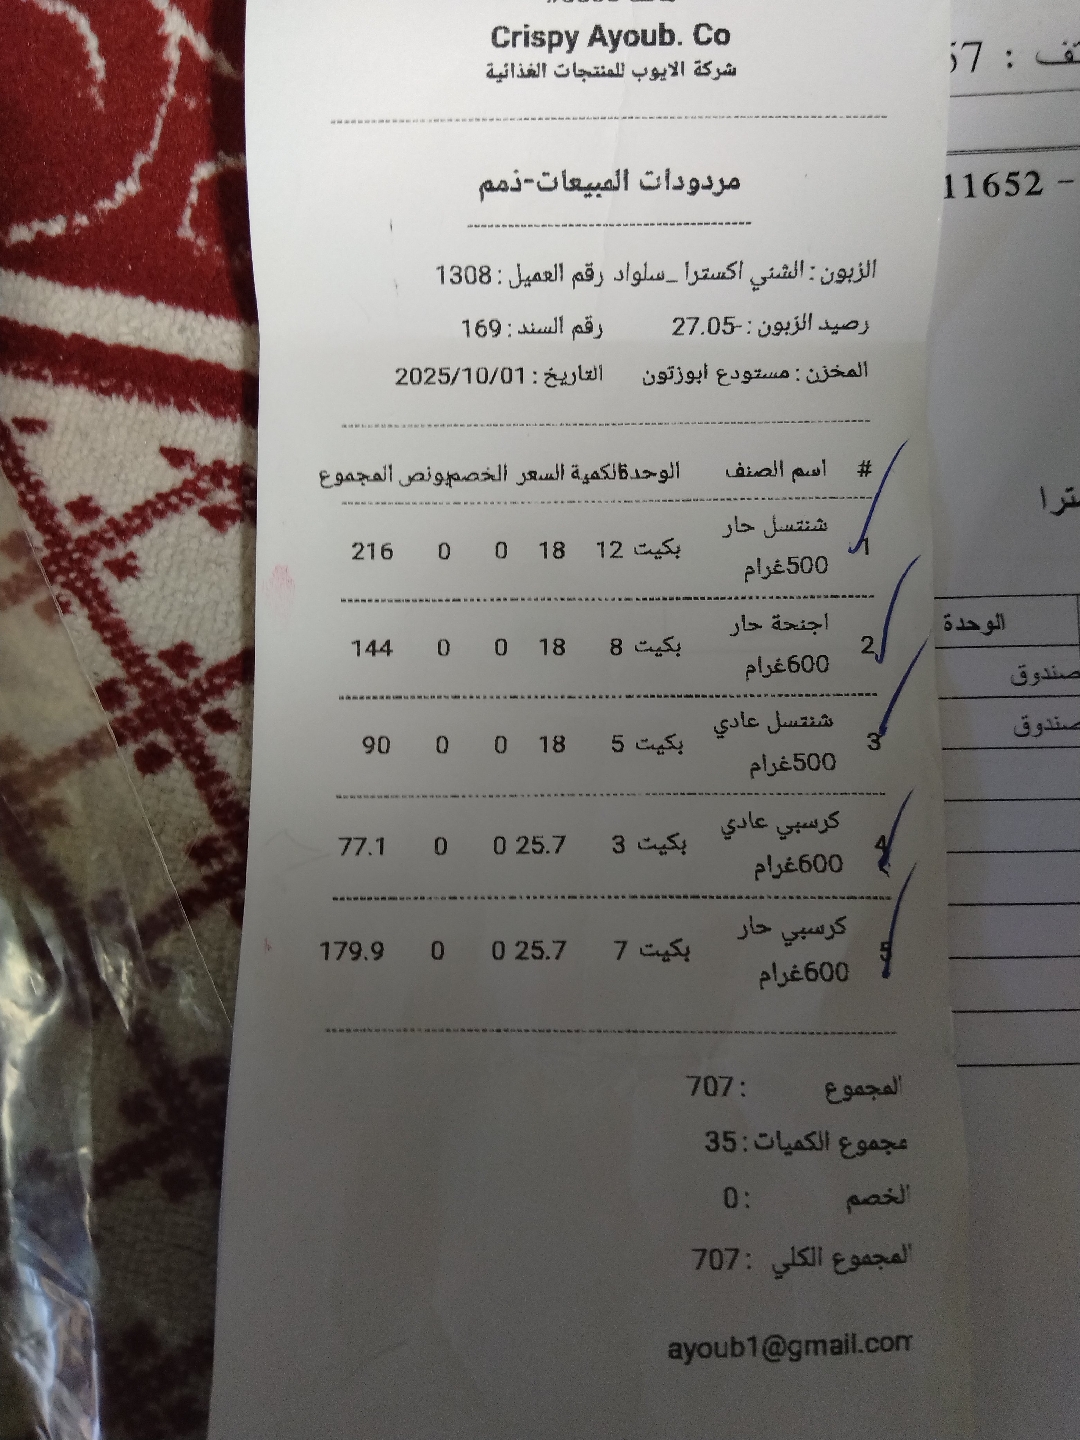 Crispy Ayoub. Co
شركة الايوب للمنتجات الغذائية
مردودات المبيعات-ذمم
الزبون : الشني اكسترا _سلواد رقم العميل : 1308
رصيد الزبون : -27.05 رقم السند : 169
المخزن : مستودع ابوزتون التاريخ : 2025/10/01
# اسم الصنف الوحدة الكمية السعر الخصم بونص المجموع
1 شنتسل حار 500غرام بكيت 12 18 0 0 216
2 اجنحة حار 600غرام بكيت 8 18 0 0 144
3 شنتسل عادي 500غرام بكيت 5 18 0 0 90
4 كرسبي عادي 600غرام بكيت 3 25.7 0 0 77.1
5 كرسبي حار 600غرام بكيت 7 25.7 0 0 179.9
المجموع : 707
مجموع الكميات : 35
الخصم : 0
المجموع الكلي : 707
ayoub1@gmail.com
57 :
11652 -
الوحدة
صندوق
صندوق